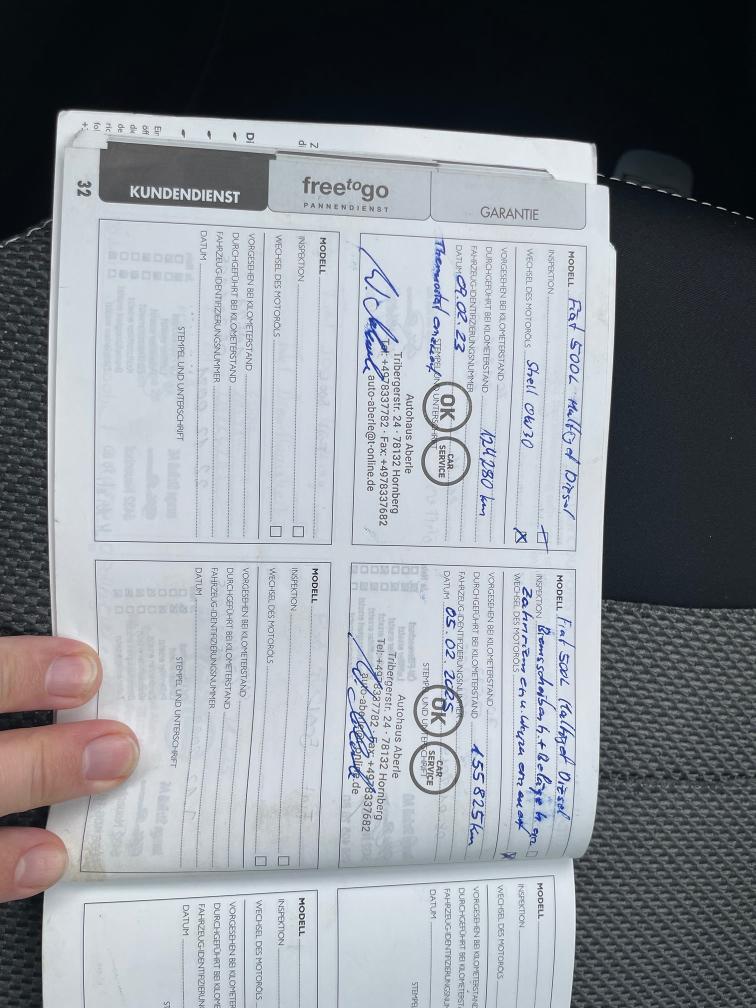 32
KUNDENDIENST
freetogo
PANNENDIENST
GARANTIE
MODELL Fiat 500L Multijet Diesel
INSPEKTION
WECHSEL DES MOTORÖLS Shell 0W30 X
VORGESEHEN BEI KILOMETERSTAND
DURCHGEFÜHRT BEI KILOMETERSTAND 124280 km
FAHRZEUG-IDENTIFIZIERUNGSNUMMER
DATUM 09.02.23
Thermostat erneuert
STEMPEL UND UNTERSCHRIFT
OK CAR SERVICE
Autohaus Aberle
Tribergerstr. 24 · 78132 Hornberg
Tel.: +4978337782 · Fax: +4978337682
auto-aberle@t-online.de
MODELL Fiat 500L Multijet Diesel
INSPEKTION Bremsscheiben h. + Beläge h. ern
WECHSEL DES MOTORÖLS
Zahnriemen u. Wapu erneuert
VORGESEHEN BEI KILOMETERSTAND
DURCHGEFÜHRT BEI KILOMETERSTAND 155825 km
FAHRZEUG-IDENTIFIZIERUNGSNUMMER
DATUM 05.02.2025
STEMPEL UND UNTERSCHRIFT
OK CAR SERVICE
Autohaus Aberle
Tribergerstr. 24 · 78132 Hornberg
Tel.: +4978337782 · Fax: +4978337682
auto-aberle@t-online.de
MODELL
INSPEKTION
WECHSEL DES MOTORÖLS
VORGESEHEN BEI KILOMETERSTAND
DURCHGEFÜHRT BEI KILOMETERSTAND
FAHRZEUG-IDENTIFIZIERUNGSNUMMER
DATUM
STEMPEL UND UNTERSCHRIFT
MODELL
INSPEKTION
WECHSEL DES MOTORÖLS
VORGESEHEN BEI KILOMETERSTAND
DURCHGEFÜHRT BEI KILOMETERSTAND
FAHRZEUG-IDENTIFIZIERUNGSNUMMER
DATUM
STEMPEL UND UNTERSCHRIFT
MODELL
INSPEKTION
WECHSEL DES MOTORÖLS
VORGESEHEN BEI KILOMETERS
DURCHGEFÜHRT BEI KILOMETE
FAHRZEUG-IDENTIFIZIERUNGS
DATUM
STEMPE
MODELL
INSPEKTION
WECHSEL DES MOTORÖLS
VORGESEHEN BEI KILOMETER
DURCHGEFÜHRT BEI KILOMETE
FAHRZEUG-IDENTIFIZIERUN
DATUM
STEM